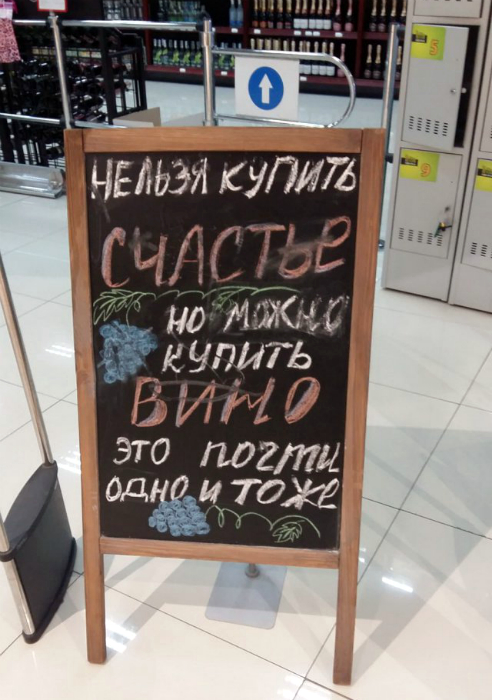 НЕЛЬЗЯ КУПИТЬ
СЧАСТЬЕ
НО МОЖНО
КУПИТЬ
ВИНО
ЭТО ПОЧТИ
ОДНО И ТОЖЕ